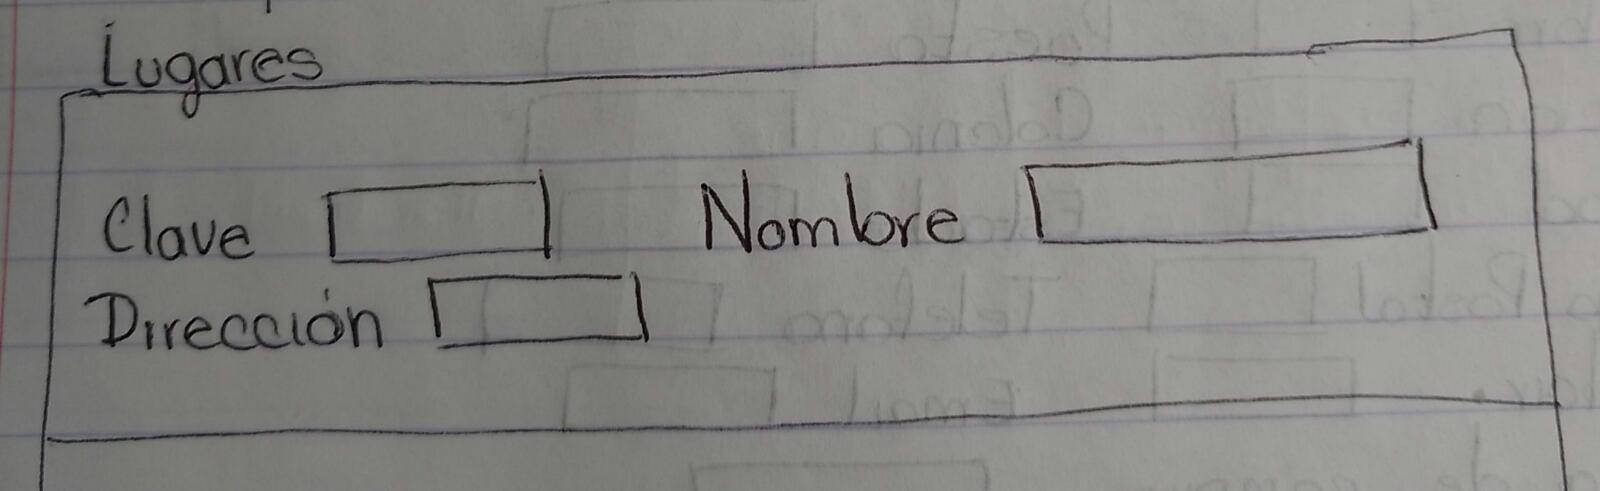 Lugares
Clave Nombre
Dirección